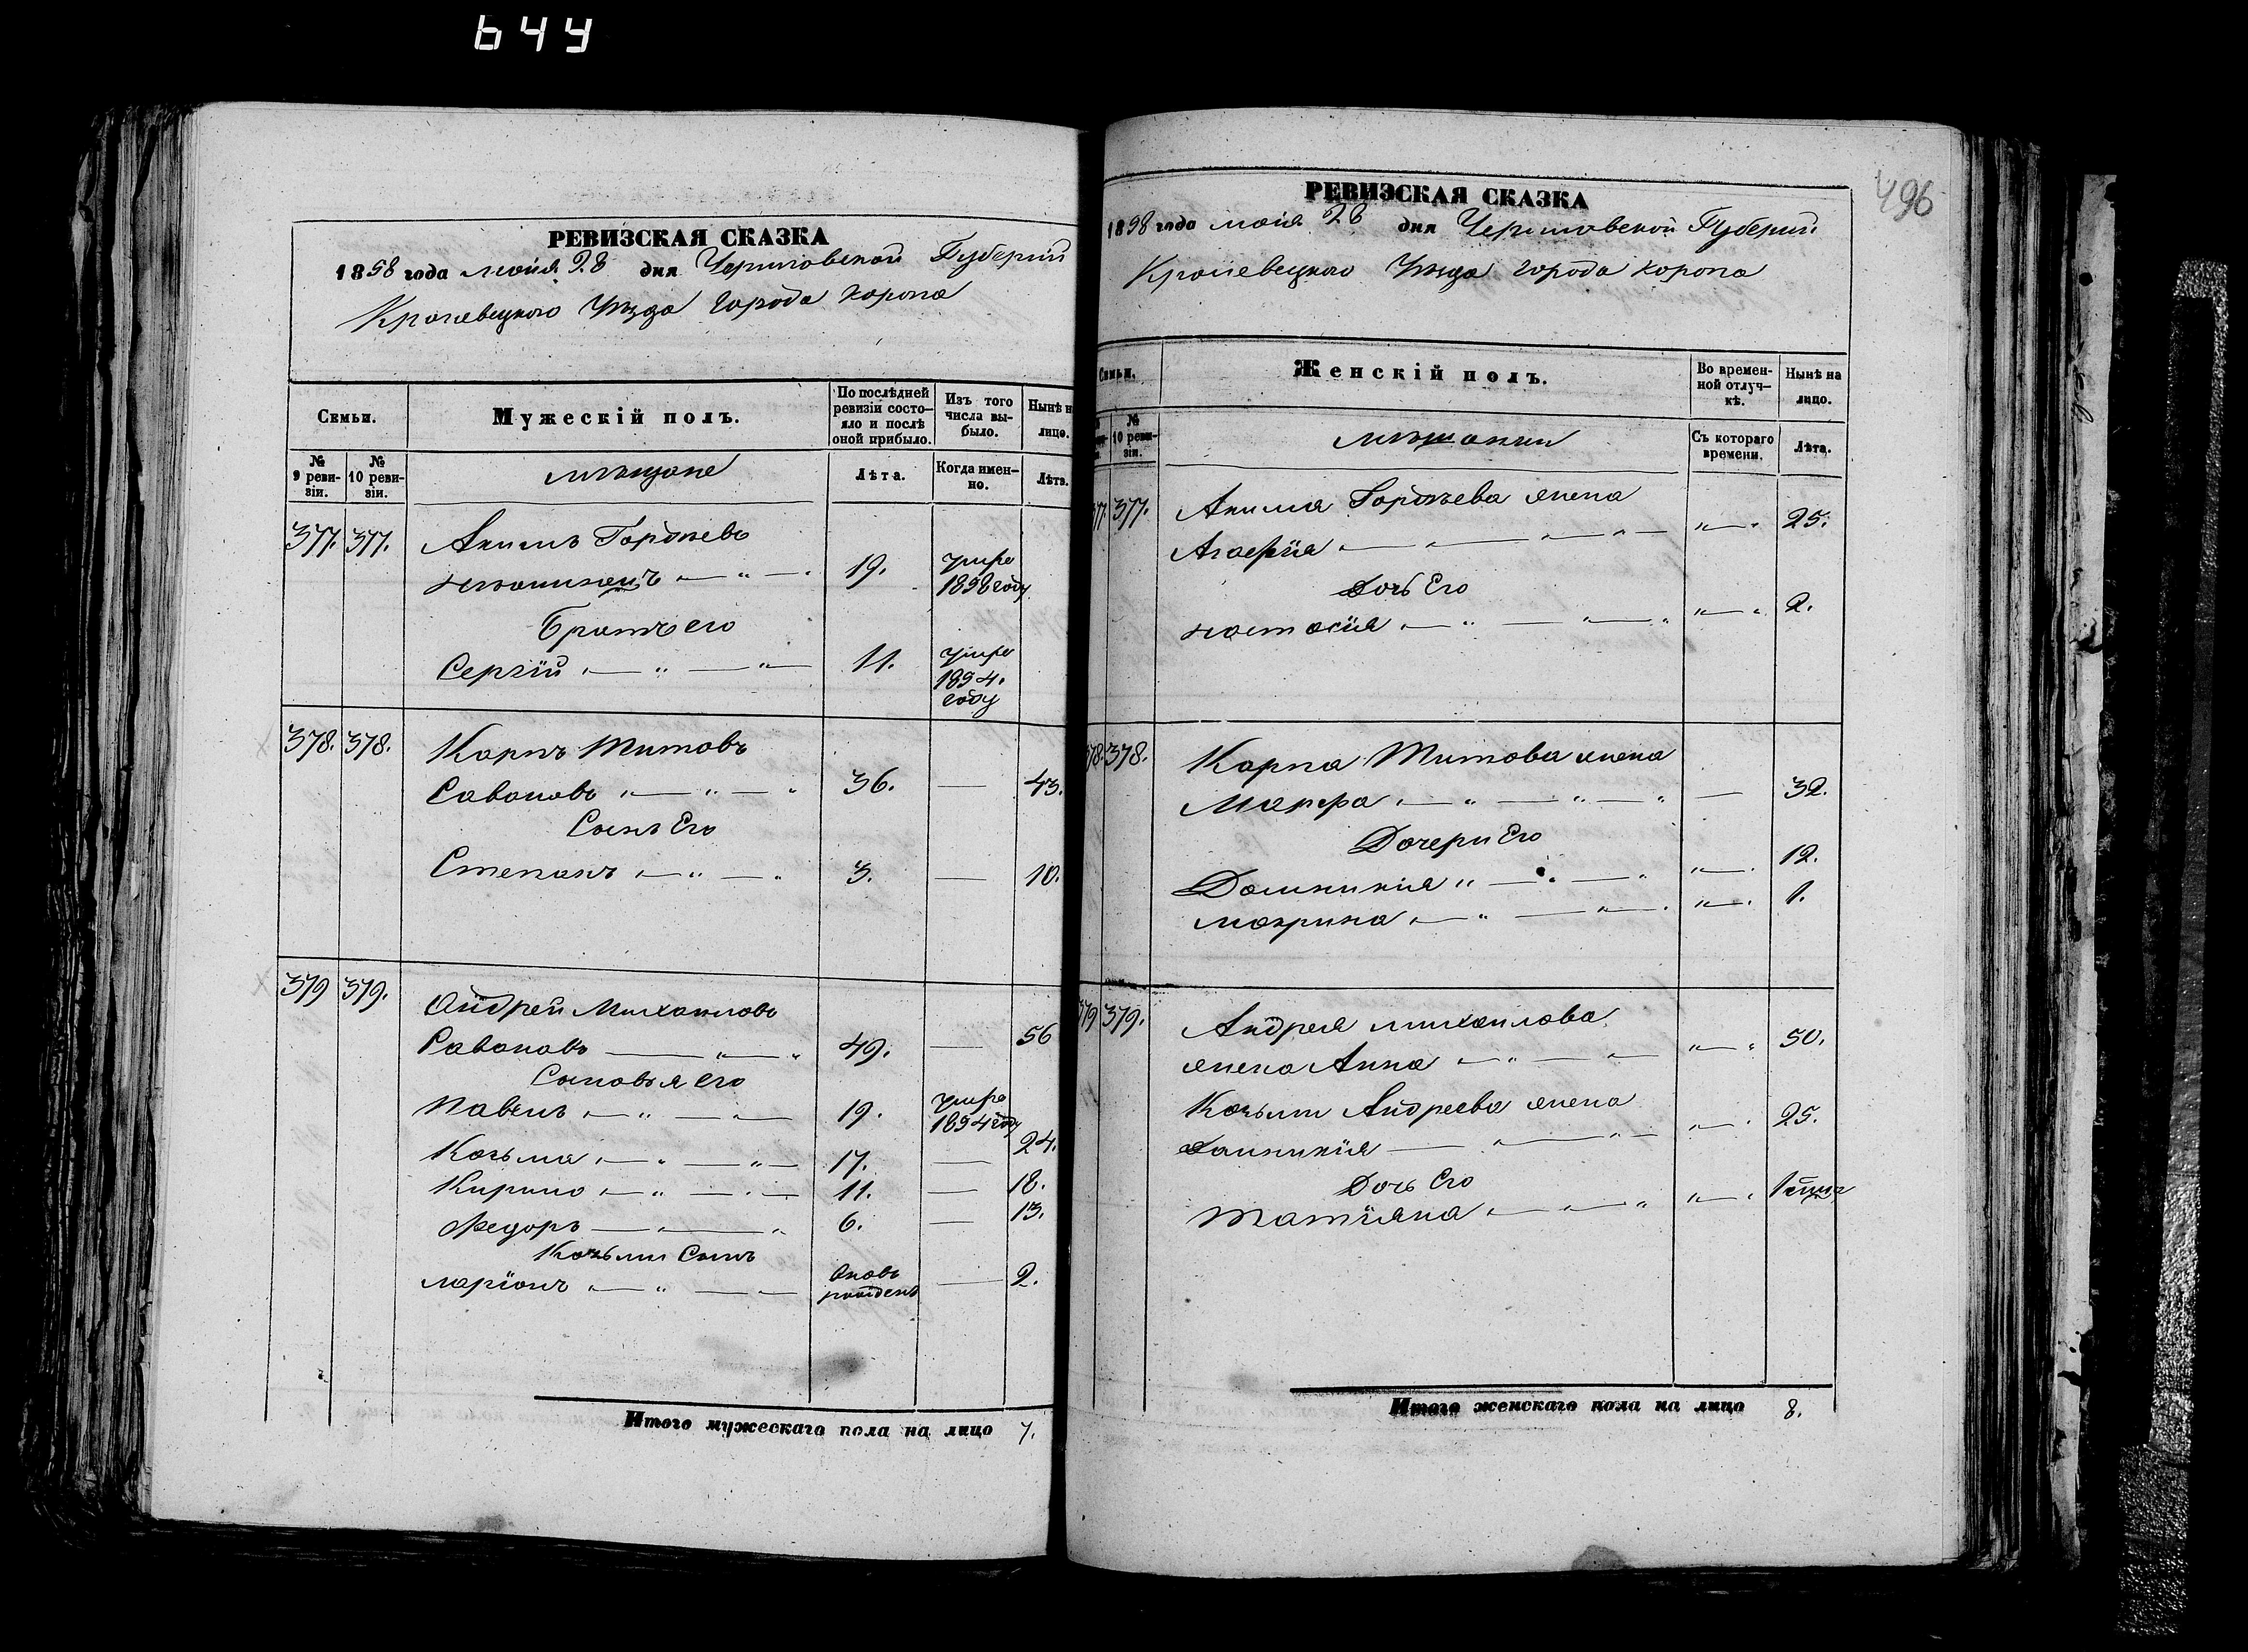 644
496
РЕВИЗСКАЯ СКАЗКА
1858 года мая 28 дня Черниговской Губерніи
Кролевецкого Уезда города Коропа
Семьи.
Мужескій полъ.
По послѣдней ревизіи состояло и послѣ оной прибыло.
Изъ того числа выбыло.
Нынѣ на лицо.
№ 9 ревизіи.
№ 10 ревизіи.
мещане
Лѣта.
Когда именно.
Лѣта.
377. 377. Акимъ Гордѣевъ
19. умре 1858 году
Братъ его
Сергій 11. умре 1854. году
378. 378. Карпъ Титовъ
Савоновъ 36. — 43.
Сынъ Его
Степанъ 3. — 10.
379 379. Андрей Михаиловъ
Савоновъ 49. — 56
Сыновья его
Павелъ 19. умре 1854 году
Козьма 17. — 24.
Кирило 11. — 18.
Федоръ 6. — 13.
Козьми Сынъ
Ларіонъ вновь рожденъ — 2.
Итого мужескаго пола на лицо 7.
РЕВИЗСКАЯ СКАЗКА
1858 года мая 28 дня Черниговской Губерніи
Кролевецкого Уезда города Коропа
Семьи.
Женскій полъ.
Во временной отлучкѣ.
Нынѣ на лицо.
№ 10 ревизіи.
мещанки
Съ котораго времени.
Лѣта.
377. 377. Акима Гордѣева жена
Агафія 25.
Дочь Его
Настасія 2.
378. 378. Карпа Титова жена
Марфа — 32.
Дочери Его
Домникія 12.
Макрина 1.
379 379. Андрея Михаилова
жена Анна 50.
Козьми Андреева жена
Домникія 25.
Дочь Его
Татіяна 1
Итого женскаго пола на лицо 8.